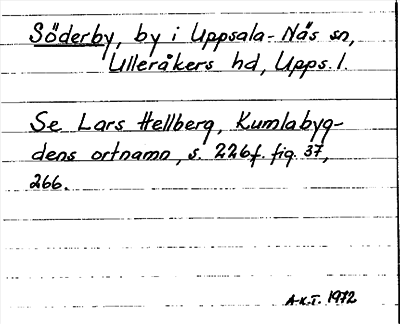 Söderby, by i Uppsala-Näs sn,
Ulleråkers hd, Upps. l.
Se Lars Hellberg, Kumlabyg-
dens ortnamn, s. 226f. fig. 37,
266.
A-K.T. 1972